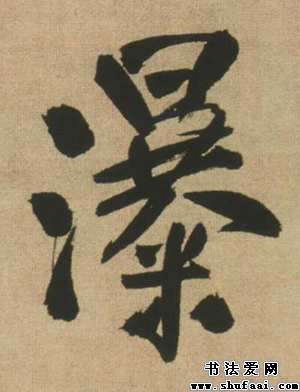 瀑
书法爱网
www.shufaai.com